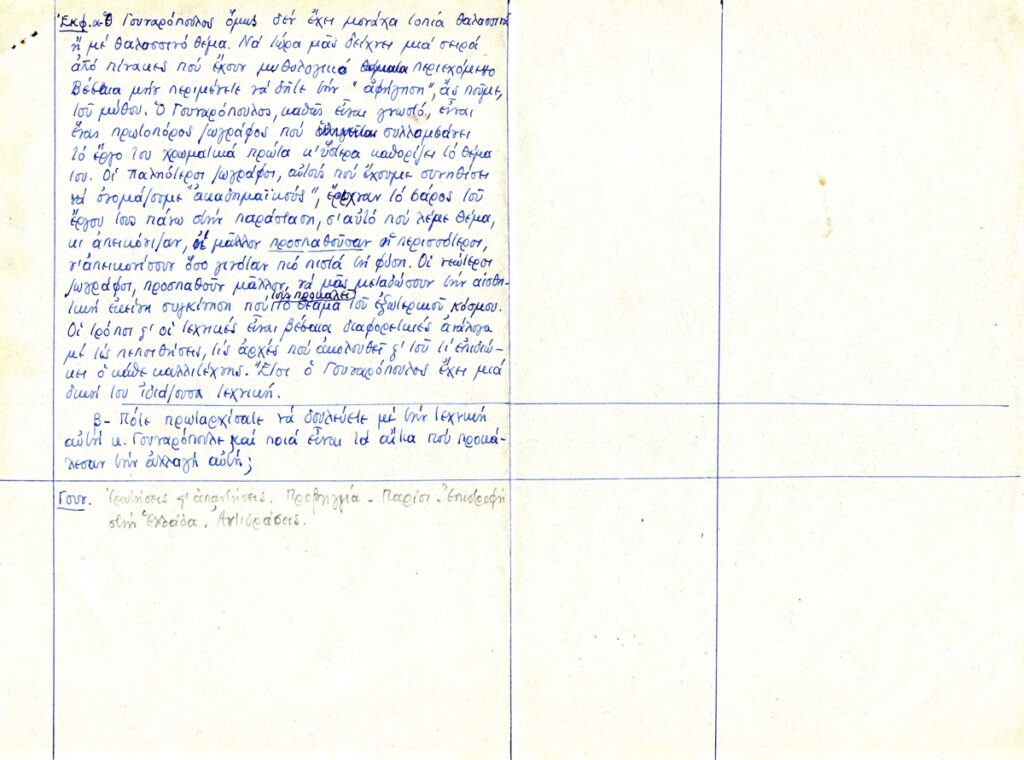 Ἐκφ. α- Ὁ Γουναρόπουλος ὅμως δέν ἔχει μονάχα τοπία θαλασσινά
ἤ μέ θαλασσινό θέμα. Νά τώρα μᾶς δείχνει μιά σειρά
ἀπό πίνακες πού ἔχουν μυθολογικό περιεχόμενο
Βέβαια μήν περιμένετε νά δῆτε τήν "ἀφήγηση", ἄς ποῦμε,
τοῦ μύθου. Ὁ Γουναρόπουλος, καθώς εἶναι γνωστό, εἶναι
ἕνας πρωτοπόρος ζωγράφος πού συλλαμβάνει
τό ἔργο του χρωματικά πρῶτα κ' ὕστερα καθορίζει τό θέμα
του. Οἱ παληότεροι ζωγράφοι, αὐτούς πού ἔχουμε συνηθίσει
νά ὀνομάζουμε "ἀκαδημαϊκούς", ἔρριχναν τό βάρος τοῦ
ἔργου τους πάνω στήν παράσταση, σ' αὐτό πού λέμε θέμα,
κι ἀπεικόνιζαν, ἤ μᾶλλον προσπαθοῦσαν οἱ περισσότεροι,
ν' ἀπεικονίσουν ὅσο γινόταν πιό πιστά τή φύση. Οἱ νεώτεροι
ζωγράφοι, προσπαθοῦν μᾶλλον, νά μᾶς μεταδώσουν τήν αἰσθη-
τική ἐκείνη συγκίνηση πού τούς προκαλεῖ τό θέαμα τοῦ ἐξωτερικοῦ κόσμου.
Οἱ τρόποι ς' οἱ τεχνικές εἶναι βέβαια διαφορετικές ἀνάλογα
μέ τίς πεποιθήσεις, τίς ἀρχές πού ἀκολουθεῖ ς' τοῦ τί ἐπιδιώ-
κει ὁ κάθε καλλιτέχνης. Ἔτσι ὁ Γουναρόπουλος ἔχει μιά
δική του ἰδιάζουσα τεχνική.
β- Πότε πρωταρχίσατε νά δουλεύετε μέ τήν τεχνική
αὐτή κ. Γουναρόπουλε καί ποιά εἶναι τά αἴτια πού προκά-
λεσαν τήν ἀλλαγή αὐτή;
Γουν. Ἐρωτήσεις ς' ἀπαντήσεις. Παρίσι - Ἐπιστροφή
στήν Ἑλλάδα. Ἀντιδράσεις.